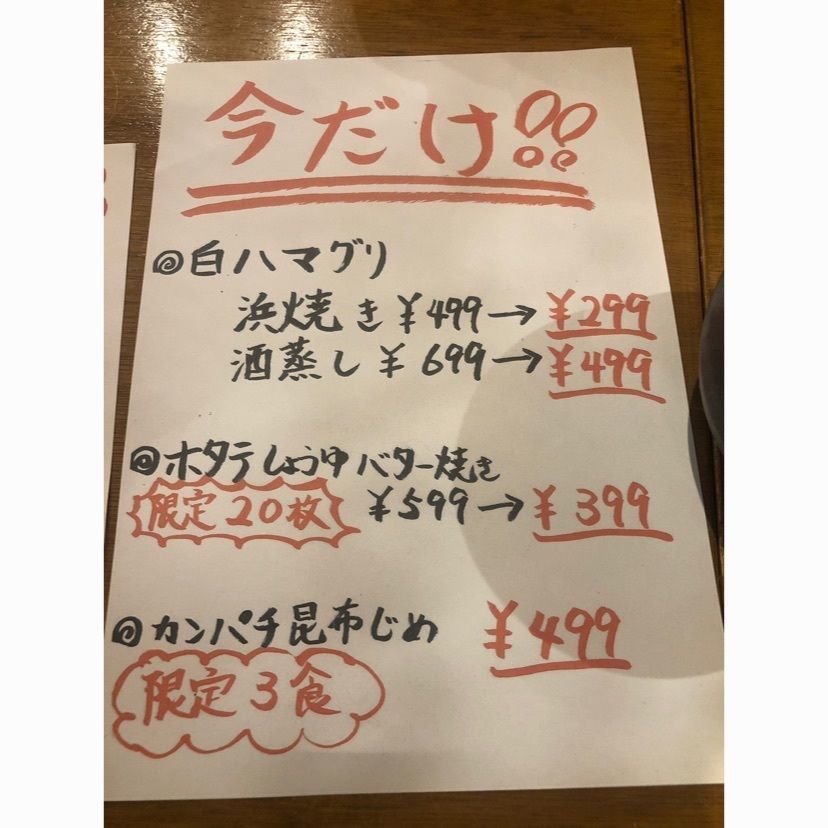 今だけ!!
◎白ハマグリ
浜焼き ¥499→¥299
酒蒸し ¥699→¥499
◎ホタテしょうゆバター焼き
限定20枚 ¥599→¥399
◎カンパチ昆布じめ ¥499
限定3食